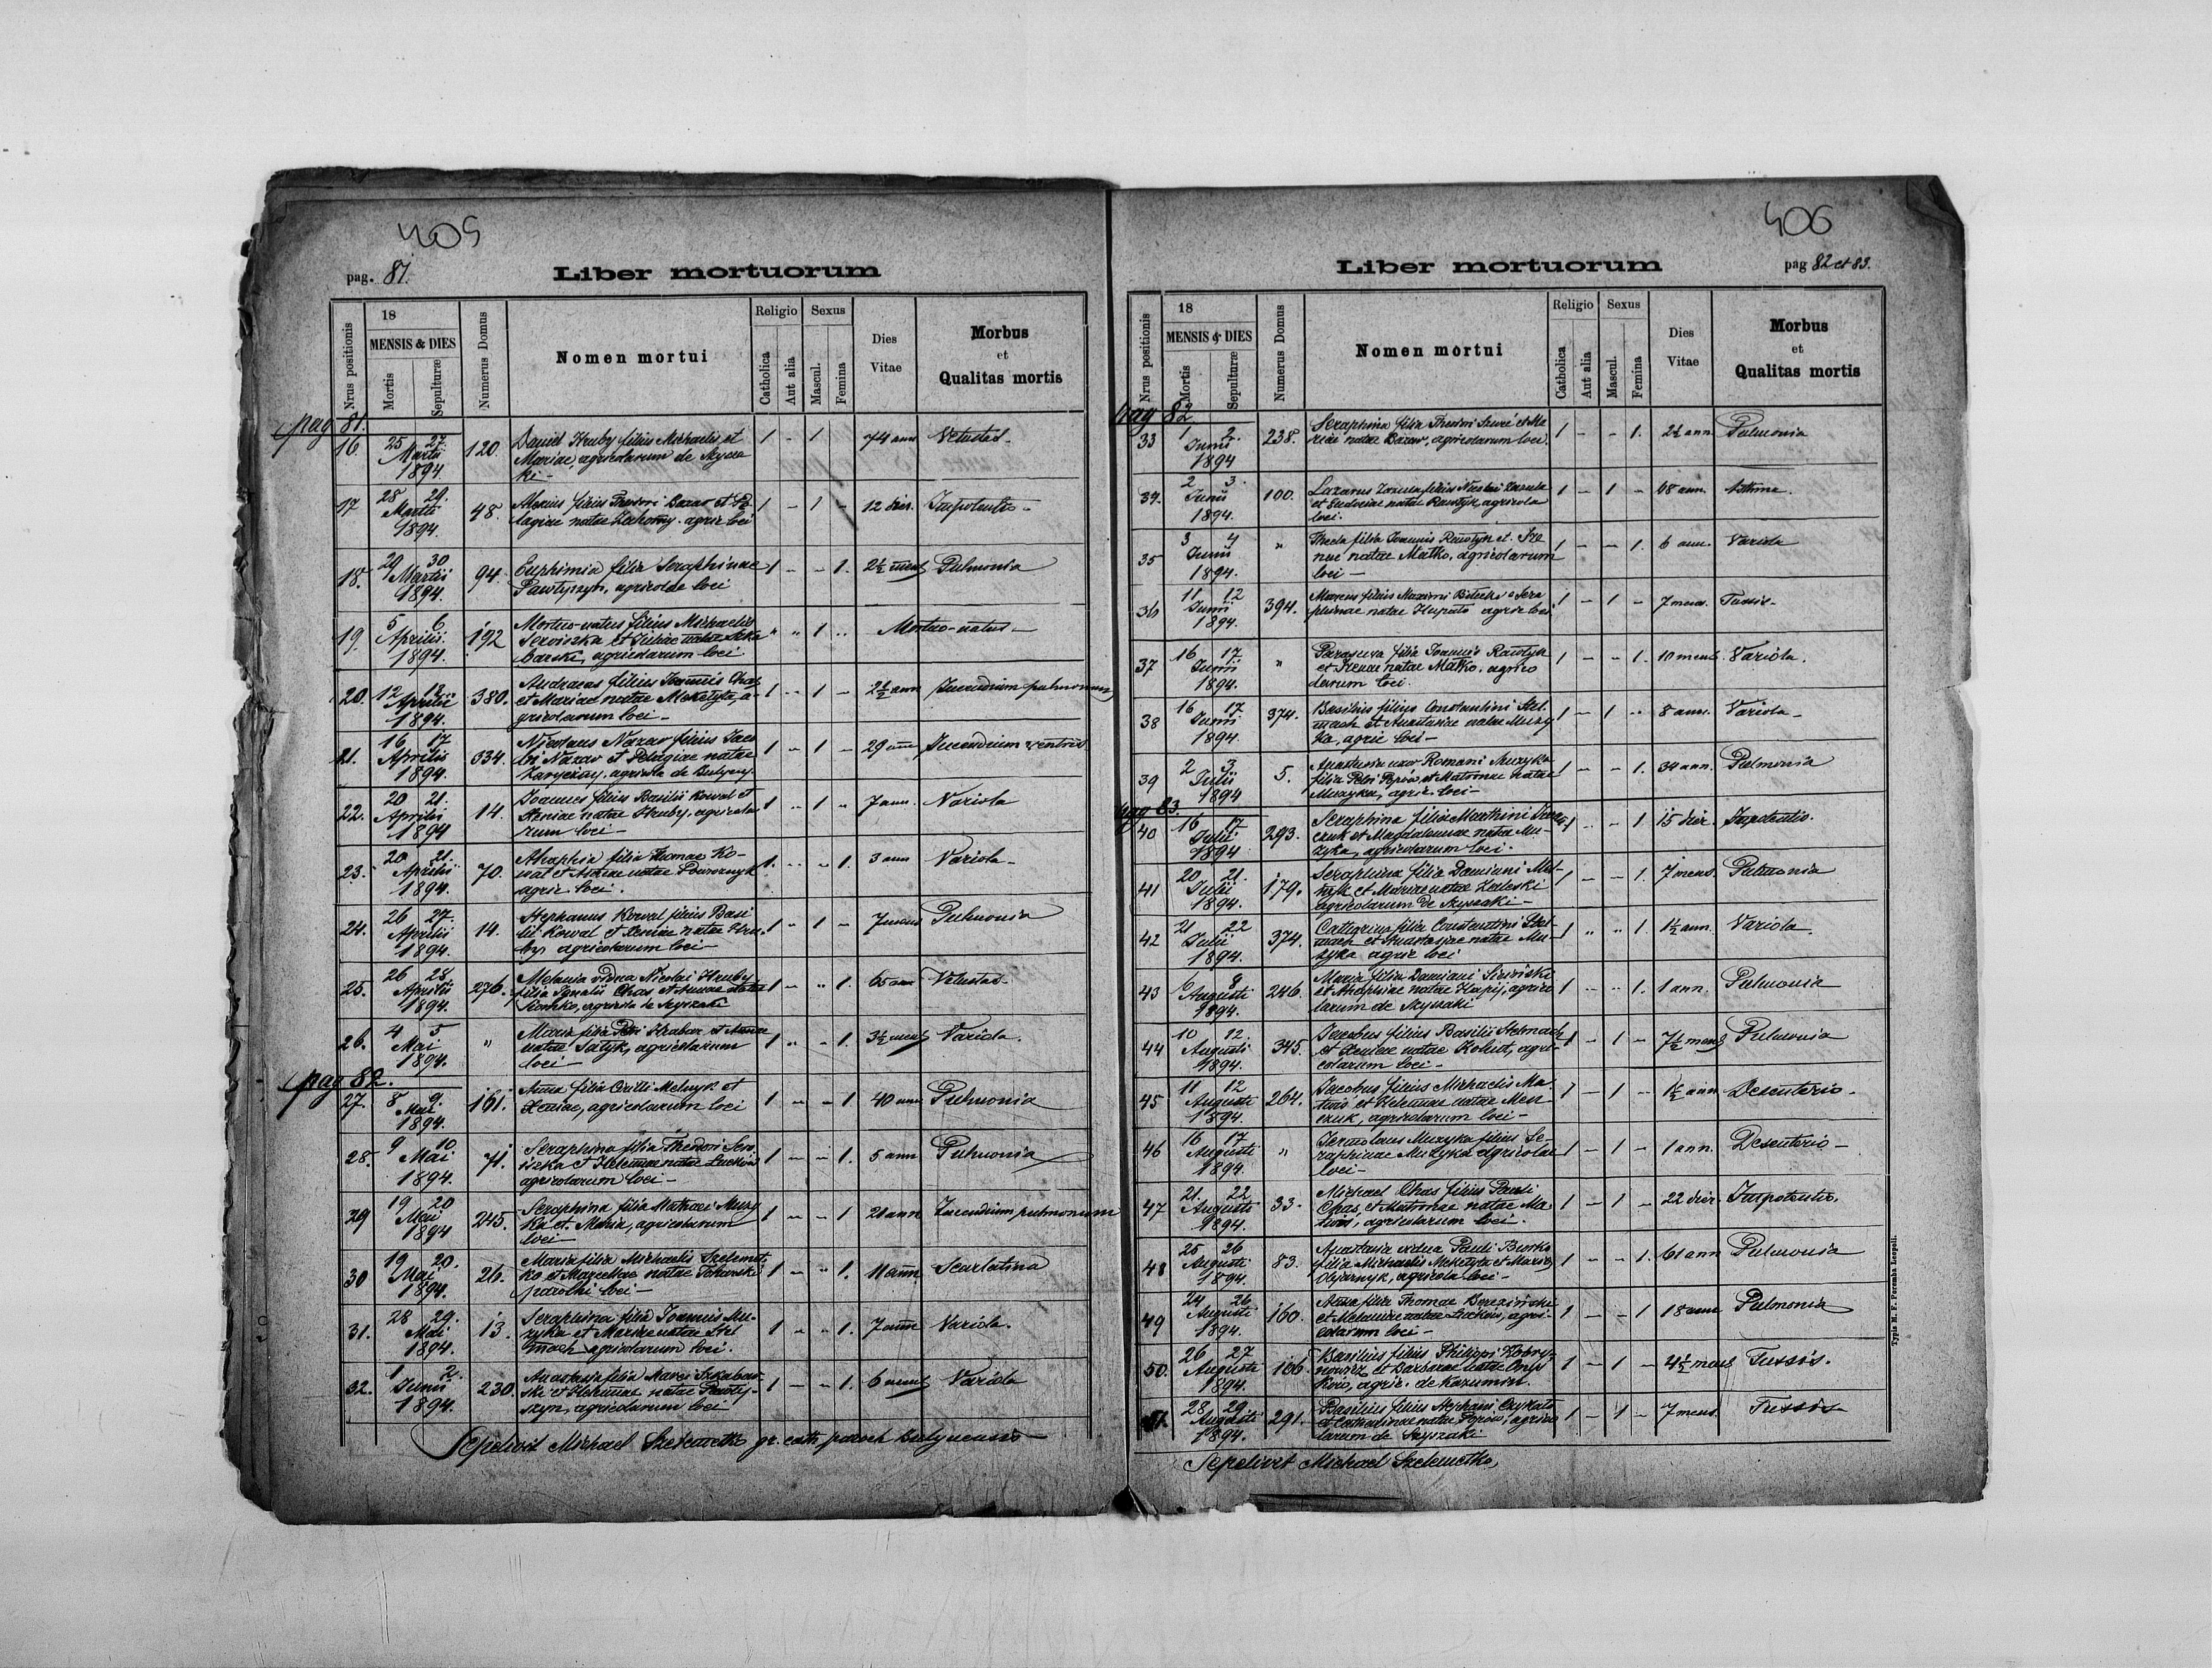 405
pag. 81.
Liber mortuorum
Nrus positionis
18
MENSIS & DIES
Mortis
Sepulturæ
Numerus Domus
Nomen mortui
Religio
Catholica
Aut alia
Sexus
Mascul.
Femina
Dies
Vitae
Morbus
et
Qualitas mortis
pag 81.
16. 25 27. 120. Daniel Hruby filius Michaelis et 1 - 1 74 ann Vetustas
Martii Mariae, agricolarum de
1894 ki -
17 28 29. 48. Alexius filius Theodori Bazar et Pe 1 - 1 - 12 dier. Impotentio -
Martii lagiae natae agric loci
1894.
18. 29 30 94. Euphimia filia Seraphinae 1 - - 1. 2½ mens Pulmonia
Martii Pawłyszyn, agricolae loci
1894.
19. 5 6 192 Mortuo-natus filius Michaelis " " 1 " Mortuo-natus -
Aprilis et Juliae natae Szka
1894. barski, agricolarum loci
20. 12 12. 380. Andreas filius Ioannis Chas 1 - 1 - 2½ ann pulmonum
Aprilis et Mariae natae Meketyta, a-
1894. gricolarum loci -
21. 16 17 334. Nicolaus Nazar filius Iaco 1 - 1 - 29 ann ventris
Aprilis bi Nazar et Pelagiae natae
1894. agricola de
22. 20 21. 14. Ioannes filius Basilii Kowal et 1 " 1 " 7 ann. Variola
Aprilis Xeniae natae Hruby, agricola
1894 rum loci -
23. 20 21. 70. Ahaphia filia Thomae Ko- 1. - - 1. 3 ann Variola -
Aprilis wal et natae Powroznyk
1894. agric loci.
24. 26 27. 14. Stephanus Kowal filius Basi 1 - 1 - 7 mens Pulmonia
Aprilis lii Kowal et Xeniae natae Hru
1894. by agricolarum loci -
25. 26 28. 276. Melania vidua Nicolai Hruby 1 - " 1. 65 ann Vetustas.
Aprilis filia Ignatii Chas et Annae natae
1894. agricola de Szyszaki
26. 4 5 " Maria filia Petri Hrabar et Annae 1 " - 1. 3½ mens Variola.
Mai natae Satyk, agricolarum
1894. loci -
pag 82.
27. 8 9. 161. Anna filia Cirilli Melnyk et 1 - - 1 40 ann Pulmonia
Mai Xeniae, agricolarum loci
1894.
28. 9 10 71. Seraphina filia Theodori 1 - - 1. 5 ann Pulmonia
Mai et Helenae natae Luckow
1894. agricolarum loci -
29 19 20 245. Seraphina filia Mathaei Muzy 1 - - 1 21 ann pulmonum
Mai ka et Maria, agricolarum
1894 loci -
30 19 20. 26. Maria filia Michaelis Szelemet 1 - " 1. 11 ann Scarlatina
Mai ko et natae
1894. parochi loci -
31. 28 29. 13. Seraphina filia Ioannis Mu- 1 - " 1. 7 ann Variola.
Mai zyka et Mariae natae Stel
1894. mach agricolarum loci.
32. 1 2. 230. Anastasia filia Marci Szkabar- 1 - - 1. 6 mens Variola
Iunii ski et Helenae natae Pawły-
1894. szyn, agricolarum loci
Sepelivit Michael Szelemetko gr. cath. paroch
406
Liber mortuorum
pag 82 et 83.
Nrus positionis
18
MENSIS & DIES
Mortis
Sepulturæ
Numerus Domus
Nomen mortui
Religio
Catholica
Aut alia
Sexus
Mascul.
Femina
Dies
Vitae
Morbus
et
Qualitas mortis
pag 82
33 1 2. 238. Seraphina filia Theodori et Ma 1 - - 1. 2½ ann Pulmonia
Iunii riae natae Bazar, agricolarum loci.
1894
34. 2 3. 100. Lazarus filius Nicolai 1 - 1 - 68 ann. Asthma.
Iunii et Eudociae natae Rawłyk, agricola
1894. loci.
35 3 4 " Thecla filia Ioannis Rawłyk et Xe 1 - - 1. 6 ann. Variola
Iunii niae natae Matko, agricolarum
1894. loci -
36 11 12 394. Marcus filius Maximi et Sera 1 - 1 - 7 mens. Tussis -
Iunii phinae natae agric loci
1894.
37 16 17 " Parascewa filia Ioannis Rawłyk 1 - - 1. 10 mens. Variola.
Iunii et Xeniae natae Matko, agrico
1894. larum loci.
38 16 17 374. Basilius filius Constantini Stel- 1 - 1 " 8 ann. Variola -
Iunii mach et Anastasiae natae Muzy
1894. ka, agric loci -
39 2 3 5. Anastasia uxor Romani Muzyka 1 - - 1. 34 ann. Pulmonia
Iulii filia Petri Popów et Matronae natae
1894 Muzyka, agric. loci -
pag 83.
40 16 17 293. Seraphina filia Marthini 1 " - 1 15 dier. Impotentio.
Iulii czuk et Magdalenae natae Mu-
1894 zyka, agricolarum loci -
41 20 21. 179. Seraphina filia Damiani Mel- 1 - - 1. 7 mens. Pulmonia
Iulii nyk et Mariae natae Zaleski
1894. agricolarum de Szyszaki -
42 21 22 374. Catharina filia Constantini Stel- 1 " " 1. 1½ ann. Variola.
Iulii mach et Anastasiae natae Mu-
1894. zyka agric loci
43 6 8 246. Maria filia Damiani 1 - " 1. 1 ann. Pulmonia
Augusti et Ahaphiae natae agrico
1894. larum de Szyszaki
44 10 12. 345. Iacobus filius Basilii Stelmach 1 - 1 - 7½ mens Pulmonia
Augusti et Xeniae natae Kohut, agri-
1894. colarum loci -
45 11 12 264. Iacobus filius Michaelis Ma 1 - 1 - 1½ ann Desenterio -
Augusti et Helenae natae
1894. czuk, agricolarum loci -
46 16 17 " Muzyka filius Se- 1 - 1 - 1 ann. Desenterio -
Augusti raphinae Muzyka agricolae
1894. loci -
47 21. 22 33. Michael Chas filius Pauli 1 - 1 - 22 dier. Impotentio.
Augusti Chas, et Matronae natae Ma
1894. agricolarum loci.
48 25 26 83. Anastasia vidua Pauli 1 - - 1. 61 ann Pulmonia
Augusti filia Michaelis Meketyta et Maria
1894. Olijarnyk, agricola loci -
49 24 26 160. Anna filia Thomae Bereziński 1 - - 1 18 ann Pulmonia
Augusti et Melaniae natae Luckow, agri-
1894. colarum loci -
50. 26 27 166. Basilius filius Philippi 1 - 1 - 4½ mens Tussis.
Augusti et Barbarae natae
1894. agric. de Kazumin.
51. 28 29. 291. Basilius filius Stephani 1 - 1 - 7 mens. Tussis
Augusti et Catharinae natae Popów, agrico
1894. larum de Szyszaki
Sepelivit Michael Szelemetko
Typis H. F. Poremba Leopoli.